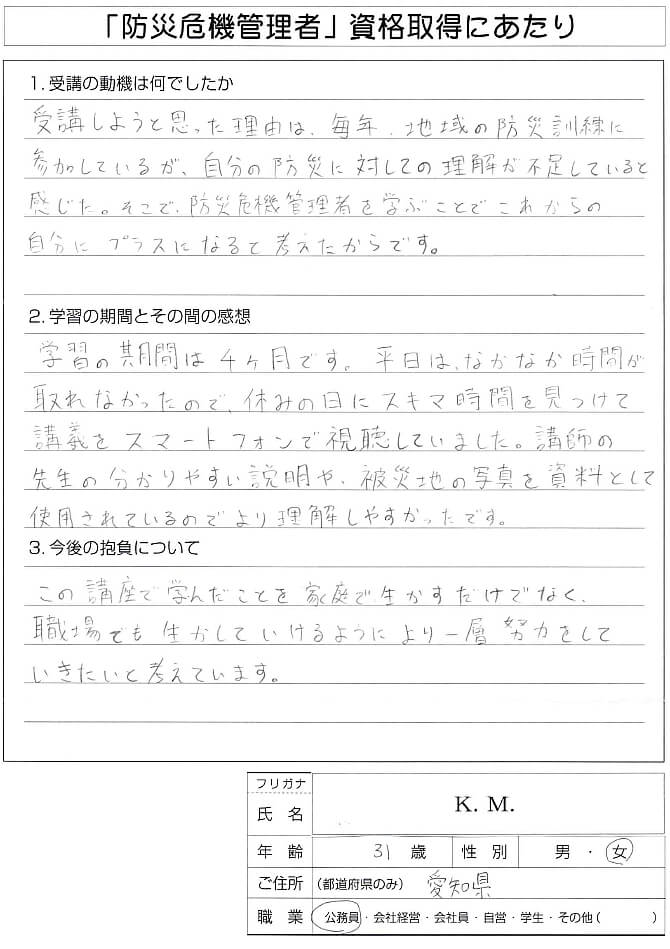 「防災危機管理者」資格取得にあたり
1. 受講の動機は何でしたか
受講しようと思った理由は、毎年、地域の防災訓練に
参加しているが、自分の防災に対しての理解が不足していると
感じた。そこで、防災危機管理者を学ぶことでこれからの
自分にプラスになると考えたからです。
2. 学習の期間とその間の感想
学習の期間は4ヶ月です。平日は、なかなか時間が
取れなかったので、休みの日にスキマ時間を見つけて
講義をスマートフォンで視聴していました。講師の
先生の分かりやすい説明や、被災地の写真を資料として
使用されているのでより理解しやすかったです。
3. 今後の抱負について
この講座で学んだことを家庭で生かすだけでなく、
職場でも生かしていけるようにより一層努力をして
いきたいと考えています。
フリガナ
氏名 K. M.
年齢 31歳 性別 男・女
ご住所 (都道府県のみ) 愛知県
職業 公務員・会社経営・会社員・自営・学生・その他( )